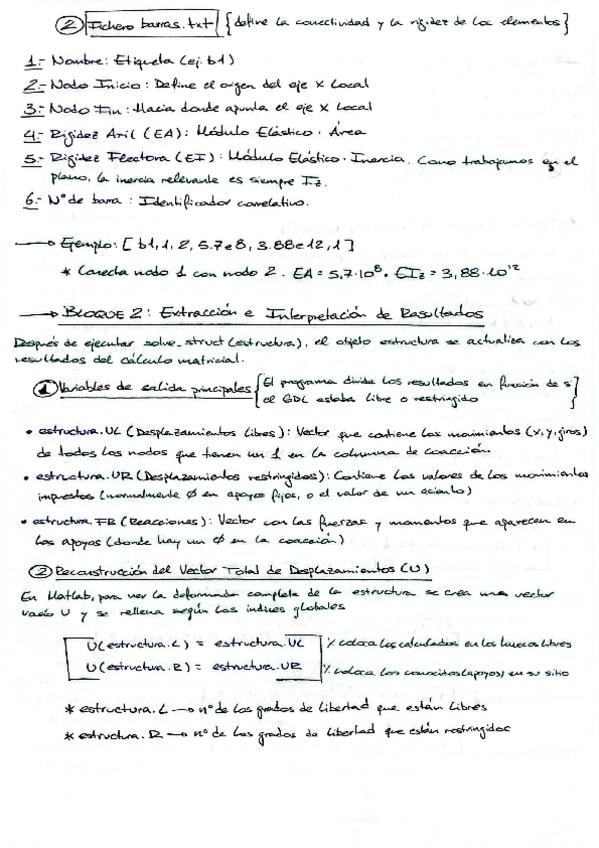 ② Fichero barras.txt {define la conectividad y la rigidez de los elementos}
1.- Nombre: Etiqueta (ej. b1)
2.- Nodo Inicio: Define el origen del eje x Local
3.- Nodo Fin: Hacia donde apunta el eje x Local
4.- Rigidez Axil (EA): Módulo Elástico · Área
5.- Rigidez Flectora (EI): Módulo Elástico · Inercia. Como trabajamos en el
plano, la inercia relevante es siempre Iz.
6.- Nº de barra: Identificador correlativo.
→ Ejemplo: [b1, 1, 2, 5.7e8, 3.88e12, 1]
* Conecta nodo 1 con nodo 2. EA = 5,7·10⁸. EIz = 3,88·10¹²
→ BLOQUE 2: Extracción e Interpretación de Resultados
Después de ejecutar solve_struct (estructura), el objeto estructura se actualiza con los
resultados del cálculo matricial.
① Variables de salida principales {El programa divide los resultados en función de si
el GDL estaba libre o restringido}
• estructura.UL (Desplazamientos libres): Vector que contiene los movimientos (x, y, giros)
de todos los nodos que tienen un 1 en la columna de coacción.
• estructura.UR (Desplazamientos restringidos): Contiene los valores de los movimientos
impuestos (normalmente Ø en apoyos fijos, o el valor de un asiento)
• estructura.FR (Reacciones): Vector con las fuerzas y momentos que aparecen en
los apoyos (donde hay un Ø en la coacción)
② Reconstrucción del Vector Total de Desplazamientos (U)
En Matlab, para ver la deformada completa de la estructura se crea un vector
vacío U y se rellena según los índices globales
U(estructura.L) = estructura.UL % coloca los calculados en los huecos libres
U(estructura.R) = estructura.UR % coloca los conocidos (apoyos) en su sitio
* estructura.L → nº de los grados de libertad que están libres
* estructura.R → nº de los grados de libertad que están restringidos